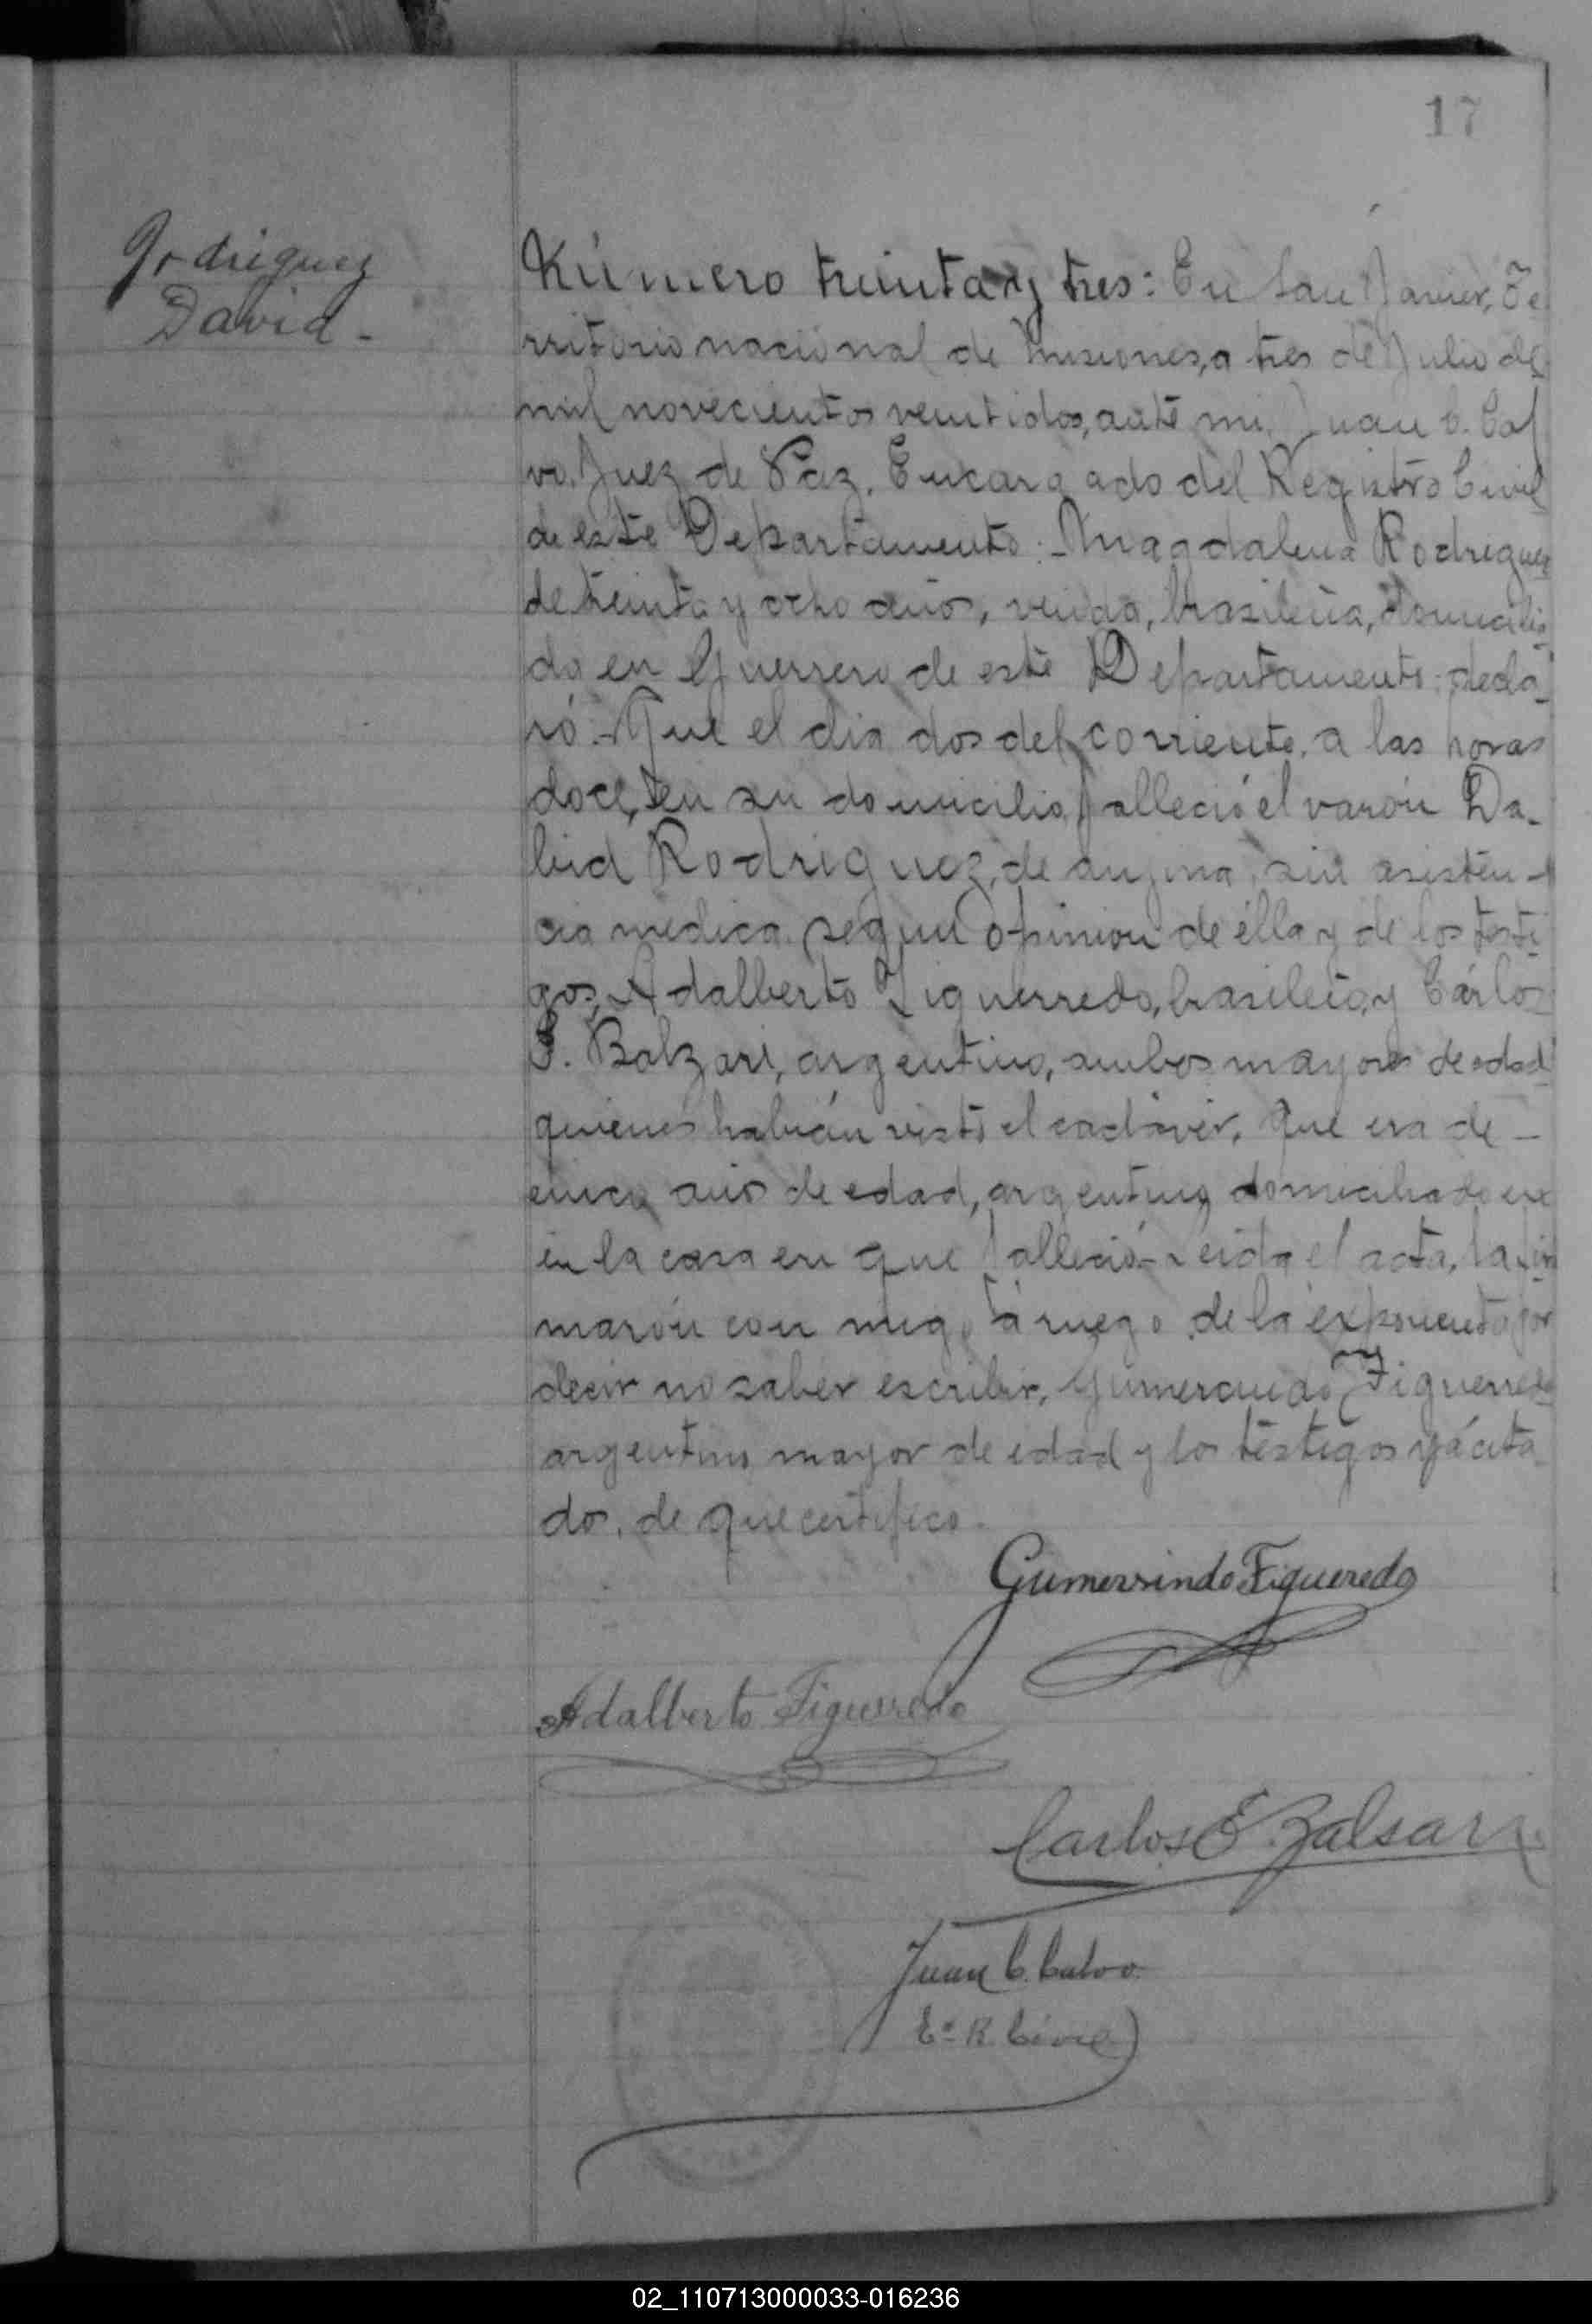 17
Rodriguez
David -
Número treinta y tres: En San Javier, Te
rritorio nacional de Misiones, a tres de Julio de
mil novecientos veintidos, ante mi, Juan C. Cal
vo, Juez de Paz, Encargado del Registro Civil
de este Departamento: Magdalena Rodriguez
de treinta y ocho años, viuda, brasileña, domicilia
da en Guerrero de este Departamento, decla
ró: Que el dia dos del corriente, a las horas
doce, en su domicilio falleció el varón Da-
bid Rodriguez, de angina, sin asisten-
cia médica, segun opinion de élla y de los testi
gos, Adalberto Figuerredo, brasileño, y Cárlos
E. Balzari, argentino, ambos mayores de edad
quienes habián visto el cadáver, que era de -
cinco años de edad, argentino, domiciliado en
en la casa en que falleció. Leida el acta, la fir
marón con migo, á ruego de la exponente por
decir no saber escribir, Gumercindo Figuerredo
argentino, mayor de edad y los testigos yá cita
dos, de que certifico.
Gumersindo Figueredo
Adalberto Figueredo
Carlos E. Balsari
Juan C. Calvo
E° R. Civil
02_110713000033-016236